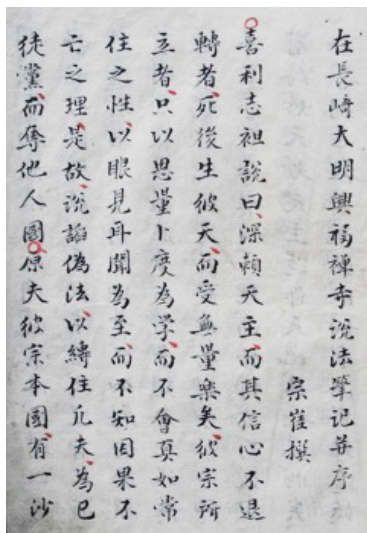 在長崎大明興福禪寺説法筆記并序
宗崔撰
喜利志袒説曰深頼天主而其信心不退
轉者死後生彼天而受無量樂矣彼宗所
立者只以思量卜度為学而不會真如常
住之性以眼見耳聞為至而不知因果不
亡之理是故説謟偽法以縛住凡夫為已
徒黨而奪他人國原夫彼宗本国有一沙